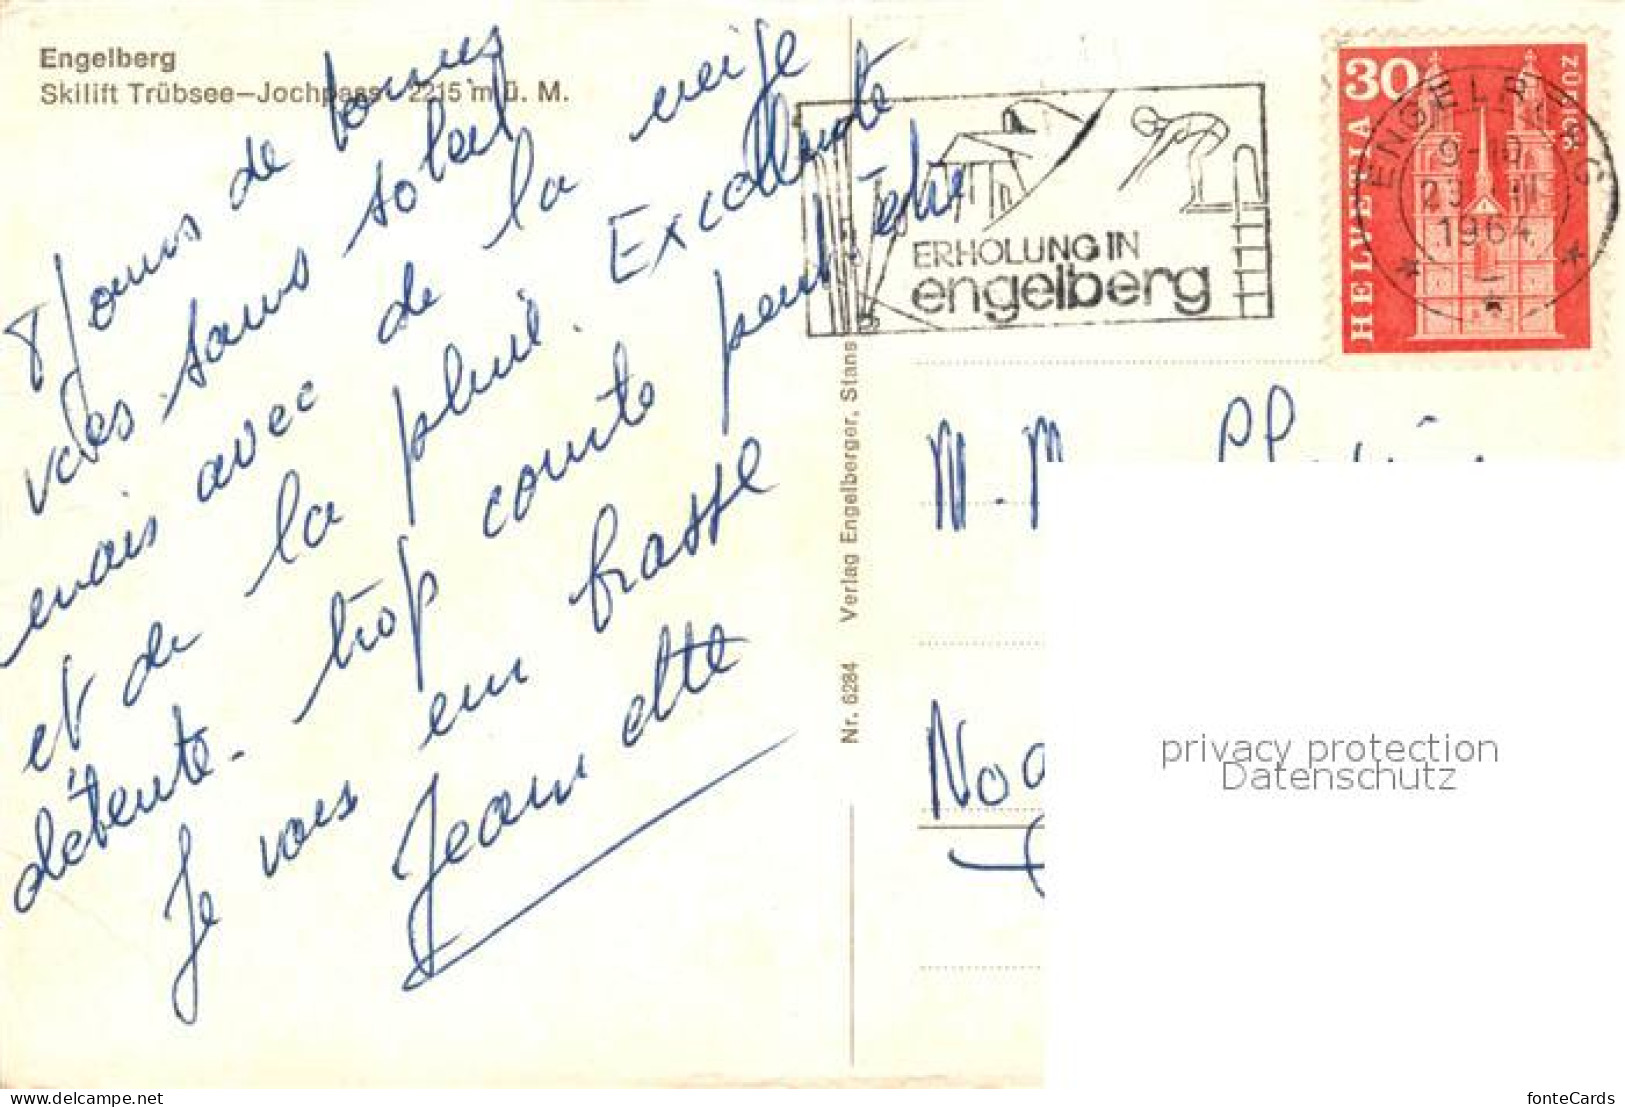 Engelberg
Skilift Trübsee—Jochpass 2215 m ü. M.
8 jours de bonnes
vac sans soleil
mais avec de la neige
et de la pluie. Excellente
détente - trop courte peut être
Je vous en brasse
Jeannette
Nr. 6284 Verlag Engelberger, Stans
ERHOLUNG IN
engelberg
30
HELVETIA
ZÜRICH
ENGELBERG
9-10
1964
M. M
No
privacy protection
Datenschutz
delcampe.net
fonteCards